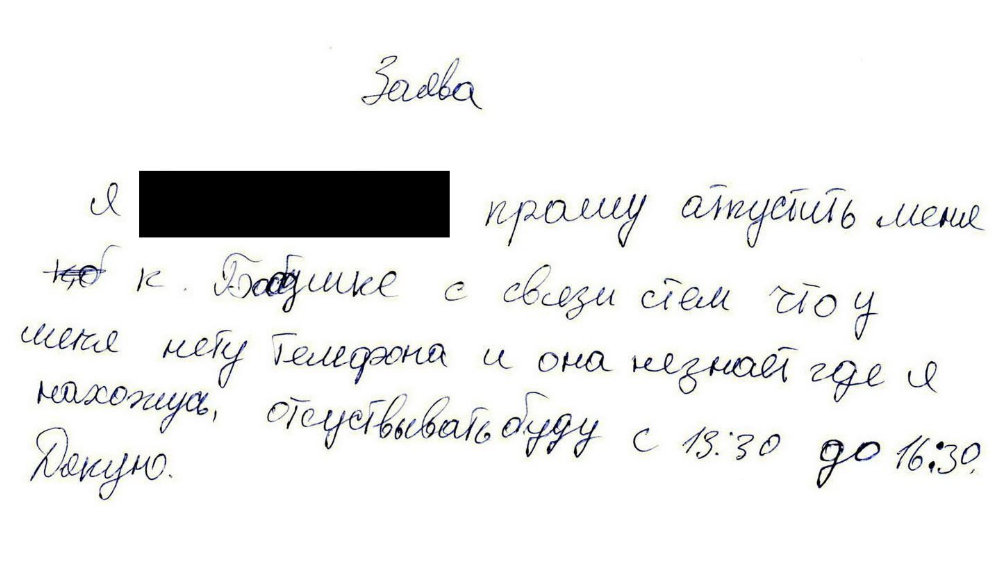 Заява
Я прашу атпустить меня
к. Бабушке с связи стем что у
меня нету телефона и она незнает где я
нахожусь, отсуствывать буду с 13:30 до 16:30.
Дякую.